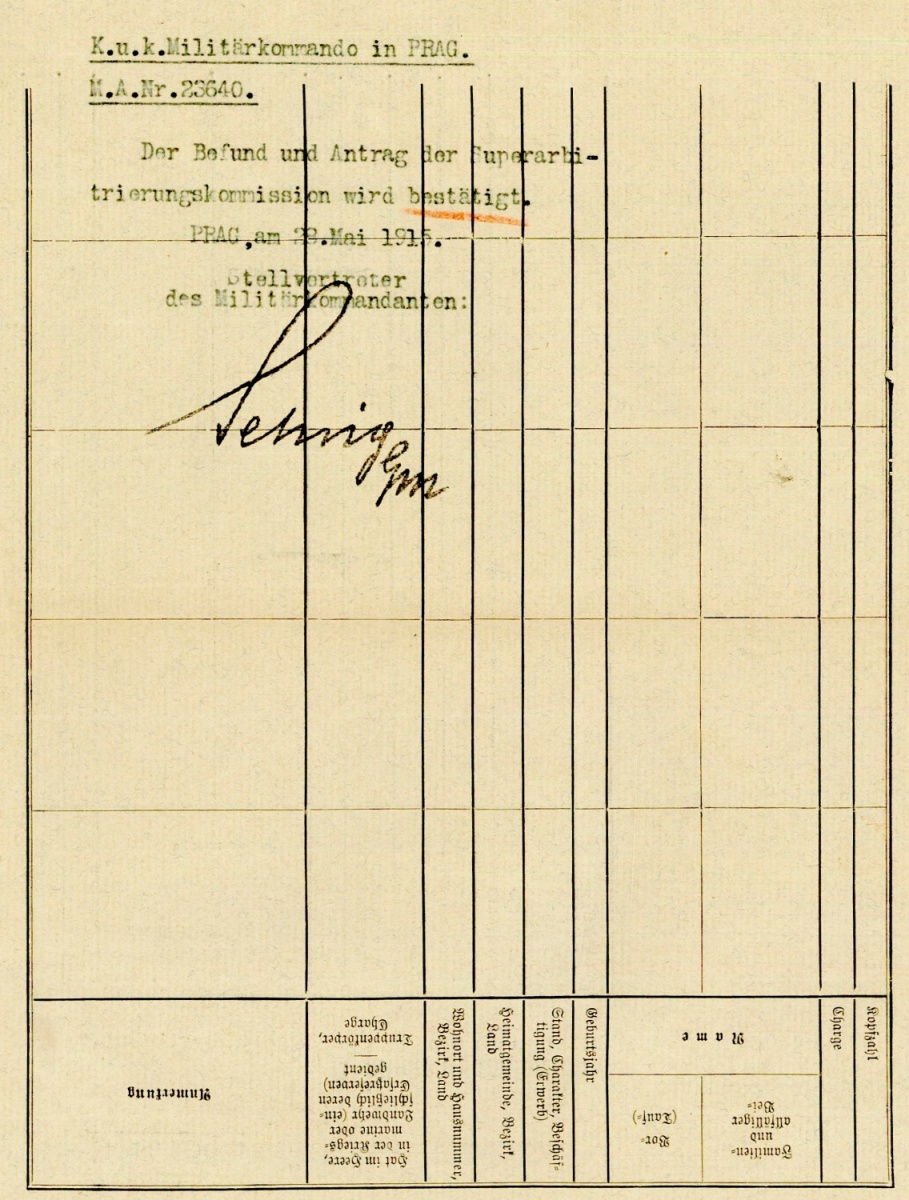 K.u.k.Militärkommando in PRAG.
M.A.Nr.23640.
Der Befund und Antrag der Superarbi-
trierungskommission wird bestätigt.
PRAG,am 29.Mai 1915.
Stellvertreter
des Militärkommandanten:
Gm
Anmerkung
Hat im Heere,
in der Kriegs-
marine oder
Landwehr (ein-
schließlich deren
Ersatzreserven)
gedient
Truppenkörper,
Charge
Wohnort und Hausnummer,
Bezirk, Land
Heimatgemeinde, Bezirk,
Land
Stand, Charakter, Beschäf-
tigung (Erwerb)
Geburtsjahr
Name
Vor-
(Tauf-)
Familien-
und
allfälliger
Bei-
Charge
Kopfzahl